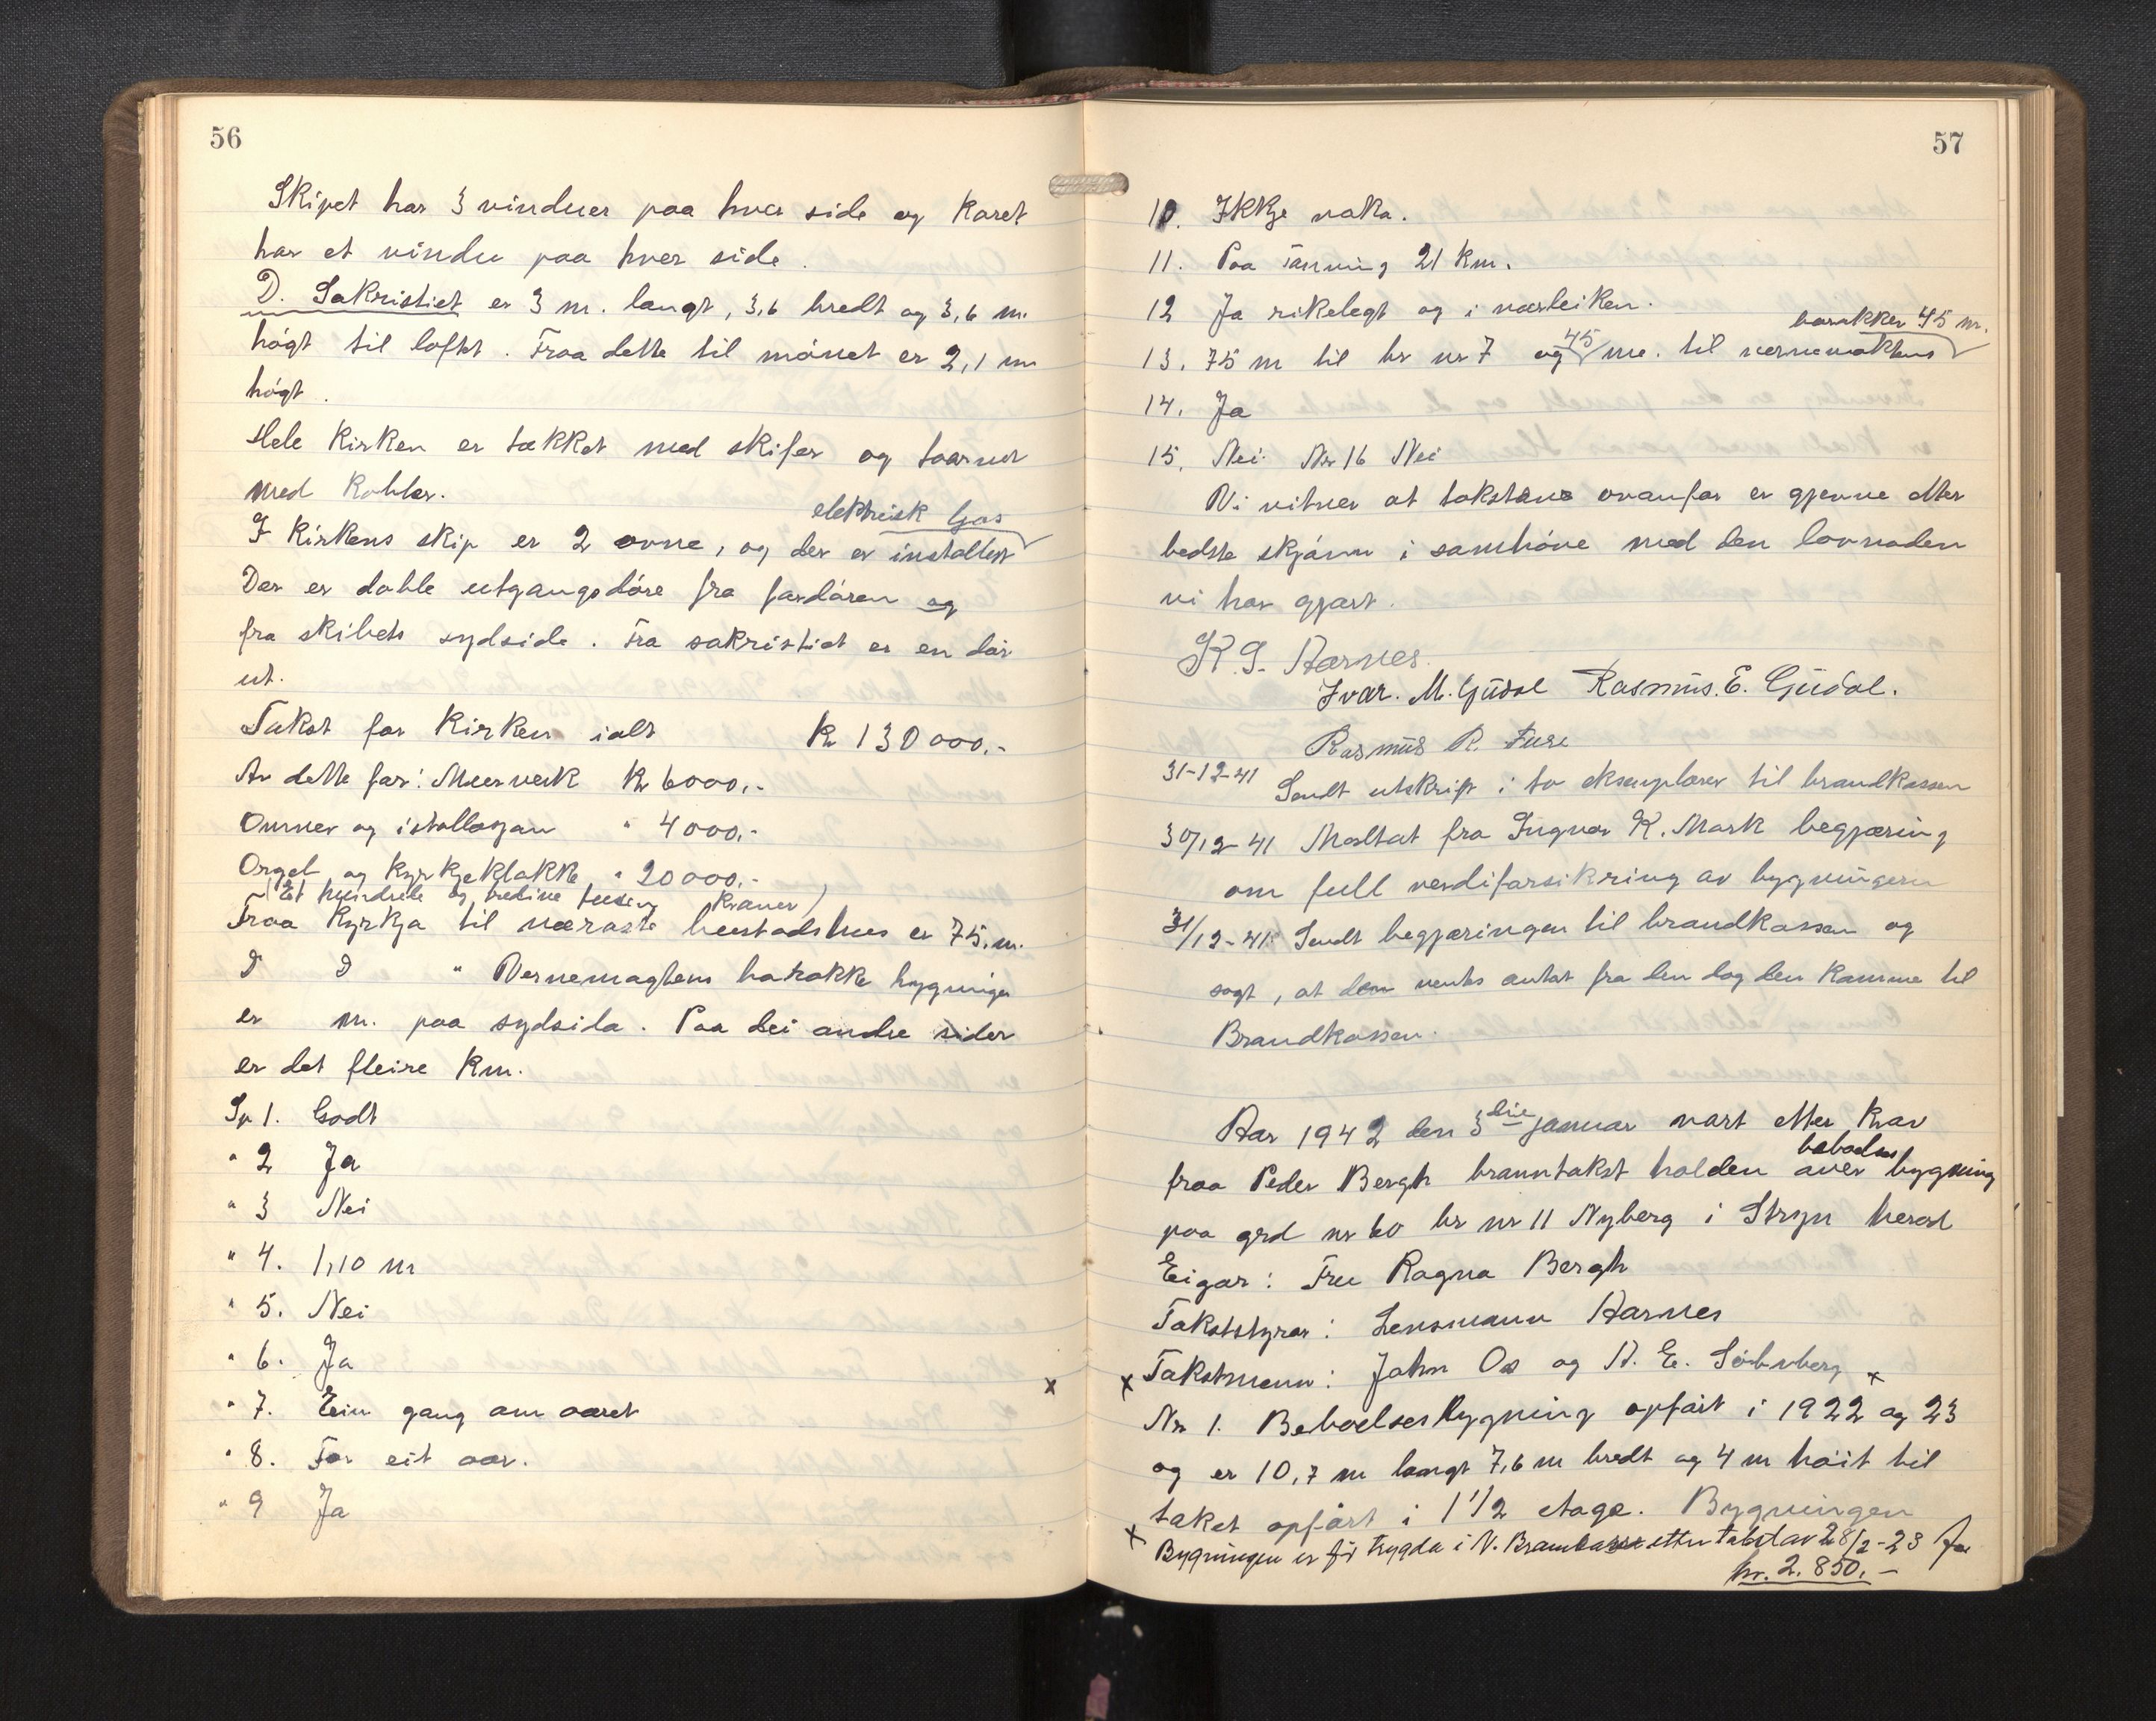 56
Skipet har 3 vinduer paa hver side og Koret
har et vindu paa hver side.
D. Sakristiet er 3 m. langt, 3,6 bredt og 3,6 m.
högt til loftet. Fraa dette til mönet er 2,1 m
högt.
Hele Kirken er tækket med skifer og taarnet
med Kobber.
elektrisk ljos
I Kirkens skip er 2 ovne, og der er installert
Der er doble utgangsdöre fra fordören og
fra skibets sydside. Fra sakristiet er en dör
ut.
Takst for Kirken ialt Kr 130000.-
Av dette for: Muerverk Kr 6000.-
Ovnner og istallasjon " 4000.-
Orgel og Kyrkjeklokke " 20000.-
(Et hundrede og tredive tusen Kroner)
Fraa Kyrkja til næraste bustadshus er 75. m.
D D " Vernemagtens barakke bygninger
er m. paa sydsida. Paa dei andre sider
er det fleire Km.
Sp 1. Godt
" 2 Ja
" 3 Nei
" 4. 1,10 m
" 5. Nei
" 6. Ja
" 7. Ein gang om aaret
" 8. For eit aar.
" 9 Ja
57
10. Ikkje vakn.
11. Paa Tänning 21 Km.
12 Ja rikelegt og i nærleiken.
barakker 45 m.
13. 75 m til br nr 7 og 45 m. til vernemaktens
14. Ja
15. Nei. Nr 16 Nei
Vi vitner at takstene ovanfor er gjevne etter
bedste skjönn i samhöve med den lovnaden
vi har gjort.
K. S. Aarnes.
Ivar. M. Gudal Rasmus. E. Gudal.
Rasmus R. Fure
31-12-41 Sendt utskrift i to eksemplarer til brandkassen
30/12-41 Mottat fra Ingvar K. Mork begjæring
om full verdiforsikring av bygningern
31/12-41 Sendt begjæringen til brandkassen og
sagt, at den ventes antat fra den dag den Komme til
Brandkassen.
Aar 1942 den 3die januar vart etter Krav
beboelses
fraa Peder Bergh branntakst holden over bygning
paa grd nr 60 br nr 11 Nyberg i Stryn herad
Eigar: Fru Ragna Bergh
Takststyrar: Lensmann Aarnes
x Takstmenn: John Os og A. E. Sölvberg x
Nr 1. Beboelsesbygning opfört i 1922 og 23
og er 10,7 m langt 7,6 m bredt og 4 m höit til
taket opfört i 1 1/2 etage. Bygningen
x Bygningen er för trygda i N. Brankasse etter takst av 28/2-23 for
kr. 2.850.-